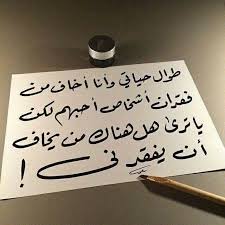 طوال حياتي وأنا أخاف من
فقدان أشخاص أحبهم لكن
يا ترى هل هناك من يخاف
أن يفقدني !